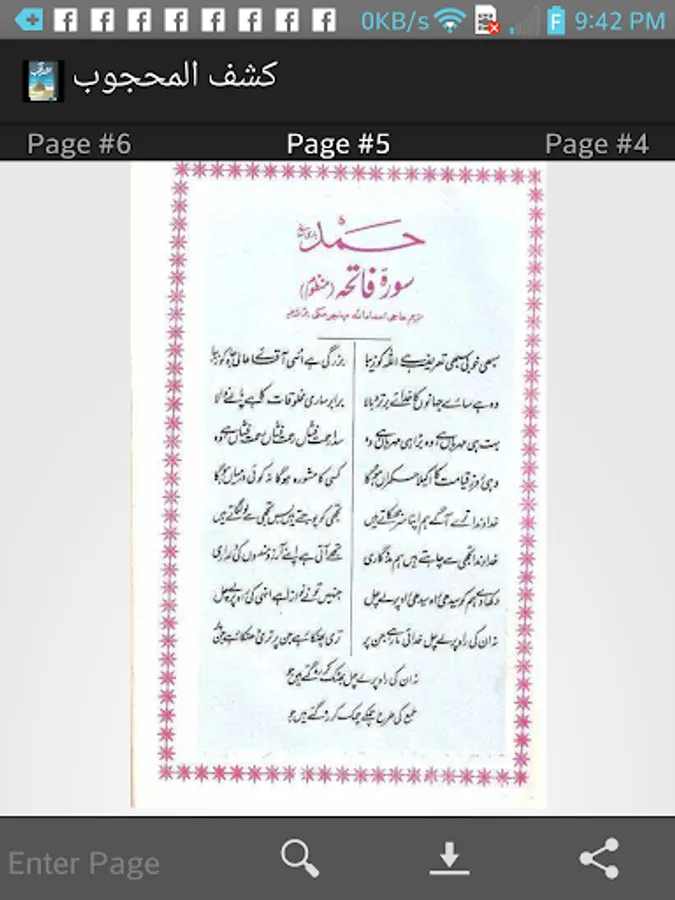 0KB/s 9:42 PM
كشف المحجوب
Page #6 Page #5 Page #4
حمد
سورۃ فاتحہ (منظوم)
سبھی خوبی سبھی تعریف ہے اللہ کو زیبا بزرگی ہے اسی آقائے اعلیٰ کو زیبا
وہ ہے سارے جہانوں کا خدائے برتر و بالا برابر ساری مخلوقات کا ہے پالنے والا
بہت ہی مہرباں ہے وہ بڑا ہی مہرباں ہے وہ سدا رحمت فشاں رحمت فشاں رحمت فشاں ہے وہ
وہی روز قیامت کا اکیلا حکمراں ہوگا کسی کا مشورہ ہوگا نہ کوئی درمیاں ہوگا
خداوندا ترے آگے ہم اپنا سر جھکاتے ہیں تجھی کو پوجتے ہیں بس تجھی سے لو لگاتے ہیں
خداوندا تجھی سے چاہتے ہیں ہم مددگاری تجھے آتی ہے اپنے آرزومندوں کی دلداری
دکھا دے ہم کو سیدھی راہ سیدھی راہ پر لے چل جنہیں تو نے نوازا ہے انہی کی راہ پر لے چل
نہ ان کی راہ پر لے چل خدائی مار ہے جن پر تری پھٹکار ہے جن پر تری دھتکار ہے جن پر
نہ ان کی راہ پر لے چل بھٹک کر رہ گئے ہیں جو
کی طرح چمکے چمک کر رہ گئے ہیں جو
Enter Page